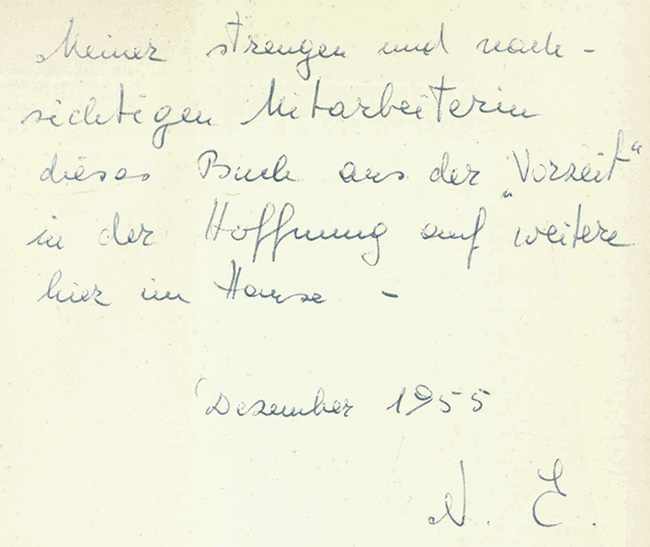 Meiner strengen und nach-
sichtigen Mitarbeiterin
dieses Buch aus der „Vorzeit“
in der Hoffnung auf weitere
hier im Hause -
Dezember 1955
N. E.